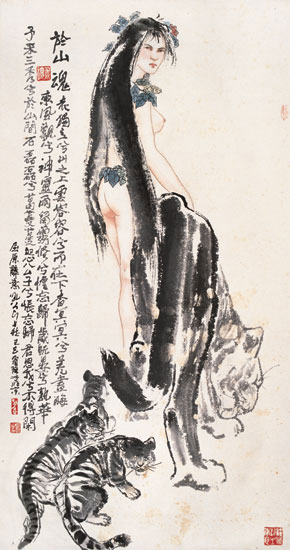 於山魂
表獨立兮山之上雲容容兮而在下杳冥冥兮羌晝晦
東風飄兮神靈雨留靈脩兮憺忘歸歲既晏兮孰華
予采三秀兮於山間石磊磊兮葛蔓蔓怨公子兮悵忘歸君思我兮不得閒
屈原